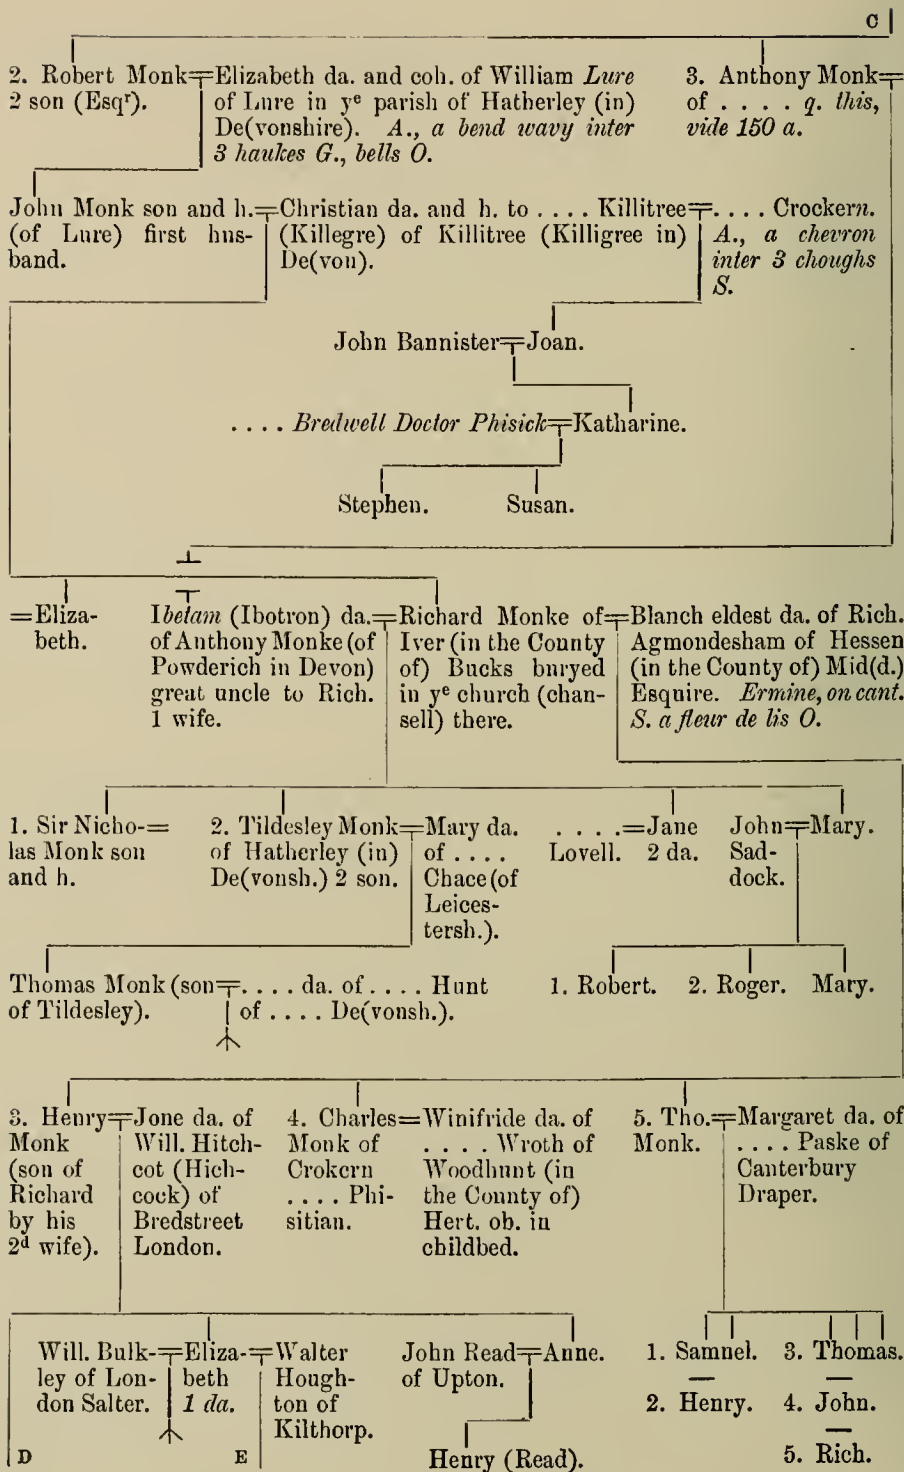 C
2. Robert Monk=Elizabeth da. and coh. of William Lure
2 son (Esqr). of Lure in ye parish of Hatherley (in)
De(vonshire). A., a bend wavy inter
3 haukes G., bells O.
3. Anthony Monk=
of . . . . q. this,
vide 150 a.
John Monk son and h.=Christian da. and h. to . . . . Killitree=. . . . Crockern.
(of Lure) first hus-
band.
(Killegre) of Killitree (Killigree in)
De(von).
A., a chevron
inter 3 choughs
S.
John Bannister=Joan.
. . . . Bredwell Doctor Phisick=Katharine.
Stephen. Susan.
=Eliza-
beth.
Ibetam (Ibotron) da.=
of Anthony Monke (of
Powderich in Devon)
great uncle to Rich.
1 wife.
Richard Monke of=
Iver (in the County
of) Bucks buryed
in ye church (chan-
sell) there.
Blanch eldest da. of Rich.
Agmondesham of Hessen
(in the County of) Mid(d.)
Esquire. Ermine, on cant.
S. a fleur de lis O.
1. Sir Nicho-=
las Monk son
and h.
2. Tildesley Monk=
of Hatherley (in)
De(vonsh.) 2 son.
Mary da.
of . . . .
Chace (of
Leices-
tersh.).
. . . .=Jane
Lovell. 2 da.
John=Mary.
Sad-
dock.
Thomas Monk (son=. . . . da. of . . . . Hunt
of Tildesley). of . . . . De(vonsh.).
1. Robert. 2. Roger. Mary.
3. Henry=
Monk
(son of
Richard
by his
2d wife).
Jone da. of
Will. Hitch-
cot (Hich-
cock) of
Bredstreet
London.
4. Charles=
Monk of
Crokern
. . . . Phi-
sitian.
Winifride da. of
. . . . Wroth of
Woodhunt (in
the County of)
Hert. ob. in
childbed.
5. Tho.=
Monk.
Margaret da. of
. . . . Paske of
Canterbury
Draper.
Will. Bulk-=
ley of Lon-
don Salter.
Eliza-=
beth
1 da.
Walter
Hough-
ton of
Kilthorp.
John Read=Anne.
of Upton.
Henry (Read).
1. Samuel. 3. Thomas.
2. Henry. 4. John.
5. Rich.
D E